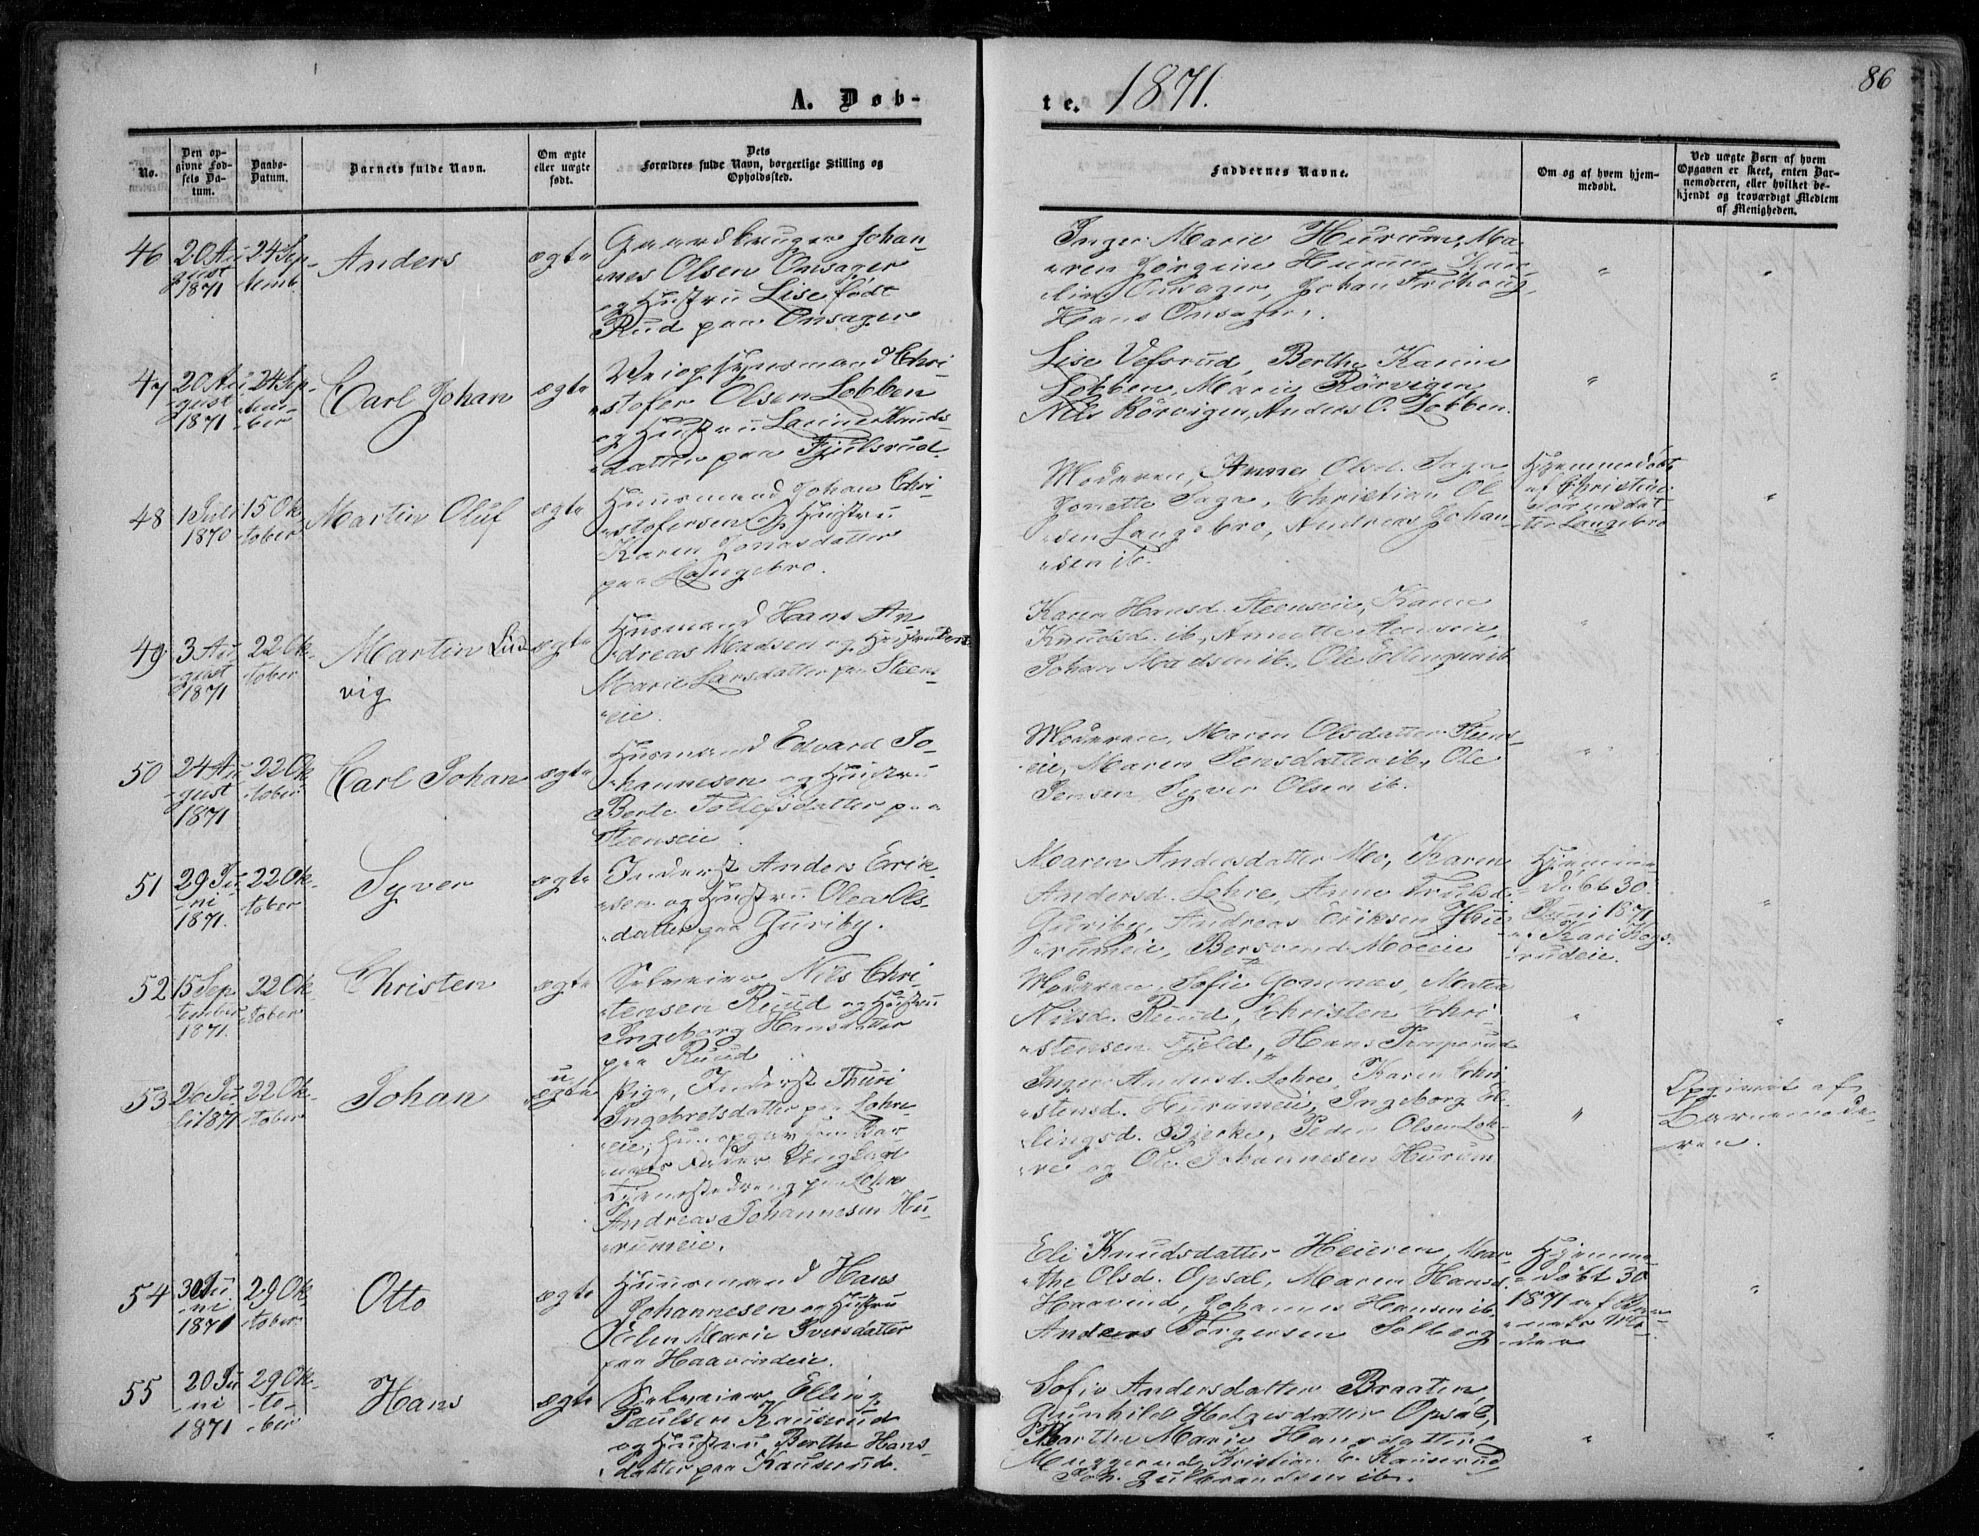 86
A. Døb-
te. 1871.
No.
Den op-
givne Fød-
sels Da-
tum.
Daabs-
Datum.
Barnets fulde Navn.
Om ægte
eller uægte
født.
Dets
Forældres fulde Navn, borgerlige Stilling og
Opholdssted.
Faddernes Navne.
Om og af hvem hjem-
medøbt.
Ved uægte Børn af hvem
Opgaven er skeet, enten Bar-
nemoderen, eller hvilket be-
kjendt og troværdigt Medlem
af Menigheden.
46
20 Au-
gust
1871
24 Sep-
temb.
Anders
ægte
Gaardbruger Johan-
nes Olsen Onsager
og Hustru Lise født
Rud paa Onsager
Inger Marie Hurum, Ma-
ren Jørgine Hurum, Kar-
line Onsager, Johan Frøhoug,
Hans Onsager.
"
"
47
20 Au-
gust
1871
24 Sep-
tem-
ber
Carl Johan
ægte
Chri-
stofer Olsen Lobben
og Hustru Larine Knuds-
datter paa Fjulsrud
Lise Vesrud, Berthe Karine
Lobben, Marie Rørvigen,
Nils Rørvigen, Anders O. Lobben.
"
"
48
1 Juli
1870
15 Ok-
tober
Martin Oluf
ægte
Huusmand Johan Chri-
stofersen og Hustru
Karen Jonasdatter
paa Langebro.
Moderen, Anna Olsd. Saga
Jonette Saga, Christian Ol-
sen Langebro, Andreas Johan-
sen ib.
Hjemmedøbt
af Christine
datter
Langebro
"
49
3 Au-
gust
1871
22 Ok-
tober
Martin Lud-
vig
ægte
Husmand Hans An-
dreas Madsen og Hustru Bert
Marie Larsdatter paa Steens-
eie.
Karen Hansd. Steenseie, Karen
Knudsd. ib, Annette Steenseie,
Johan Madsen ib, Ole Ellingsen ib
"
50
24 Au-
gust
1871
22 Ok-
tober
Carl Johan
ægte
Husmand Edvard Jo-
hannesen og Hustru
Berte Tollefsdatter paa
Steenseie.
Moderen, Maren Olsdatter
eie, Maren Jensdatter ib, Ole
Jensen Syver Olsen ib.
"
51
29 Ju-
ni
1871.
22 Ok-
tober
Syver
ægte
Inderst Anders Erik-
sen og Hustru Olea Ols-
datter paa Guriby.
Maren Andersdatter Mo, Karen
Andersd. Lohre, Anne Trulsd.
Guriby, Andreas Eriksen Hu-
rumeie, Bersvend Moeeie
Hjemme-
døbt 30
Juni 1871
af Kari
rudeie.
"
52
15 Sep-
tember
1871.
22 Ok-
tober
Christen
ægte
Selveier Nils Chri-
stensen Ruud og Hustru
Ingeborg Hansdatter
paa Ruud
Moderen, Sofie Gomnæs, Marthe
Nilsd. Ruud, Christen Chri-
stensen Fjeld, Hans
"
"
53
26 Ju-
li 1871
22 Ok-
tober
Johan
u
ægte
Pige, Inderst Thuri
Ingebretsdatter paa Lohre-
eie; Hun opgav som Bar-
nets Fader Ungkarl
Tjenestedreng paa Lohre
Andreas Johannesen Hu-
rumeie.
Inger Andersd. Lohre, Karen Chri-
stensd. Hurumeie, Ingeborg El-
lingsd. Bjerke, Peder Olsen Loh-
re og Ole Johannesen Hurum
"
Opgivet af
Barnemode-
ren.
54
30 Ju-
ni
1871
29 Ok-
tober
Otto
ægte
Huusmand Hans
Johannesen og Hustru
Elen Marie Iversdatter
paa Haavindeie.
Eli Knudsdatter Heieren, Mar-
the Olsd. Opsal, Maren Hansd.
Haavind, Johannes Hansen ib,
Anders Torgersen Solberg
Hjemme-
døbt 30
1871 af Bar-
nets Mo-
der
"
55
20 Ju-
ni
1871
29 Ok-
to-
ber
Hans
ægte
Selveier Elling
Paulsen Kauserud
og Hustru Berthe Hans-
datter paa Kauserud.
Sofie Andersdatter Braaten,
Gunhild Helgesdatter Opsal,
Marthe Marie Hansdatter
Muggerud, Kristian Kauserud,
Joh. Gulbrandsen ib.
"
"